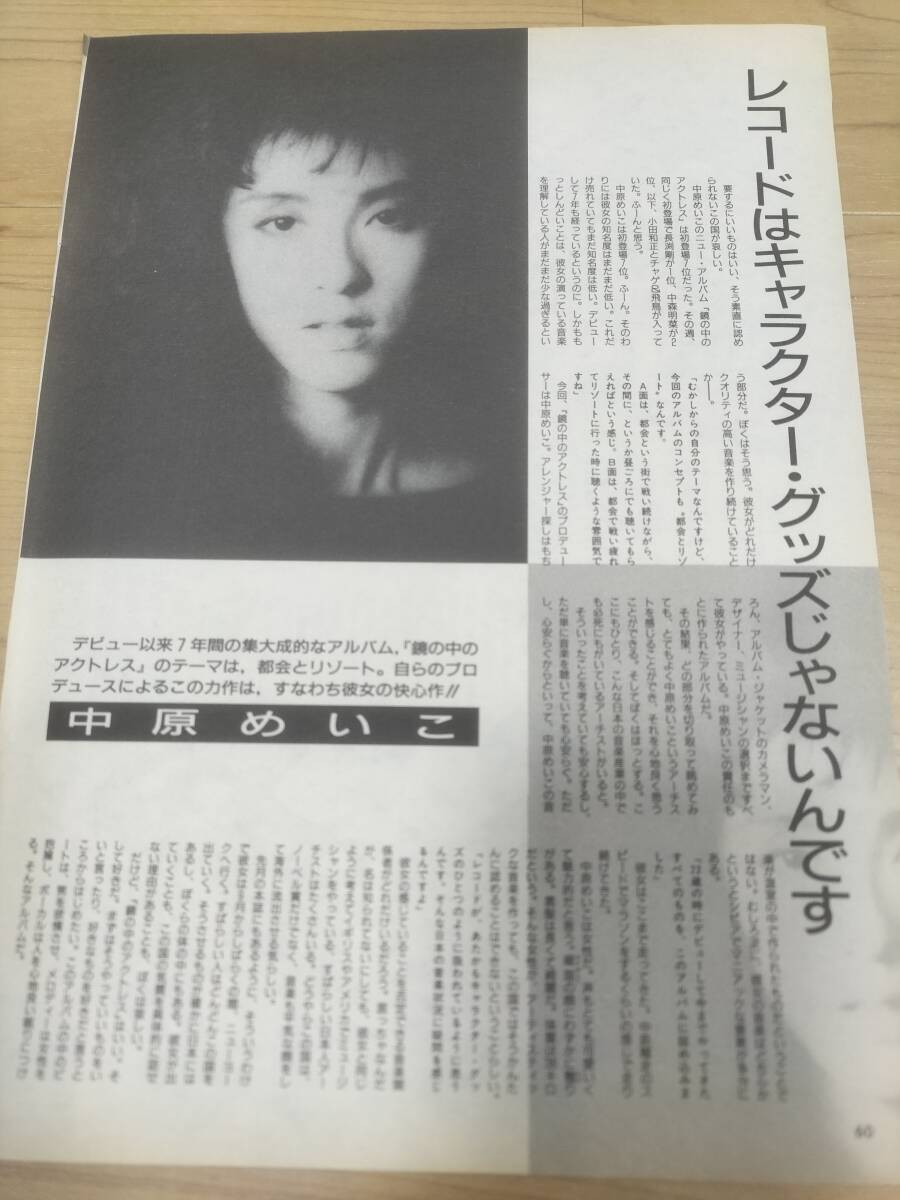 レコードはキャラクター・グッズじゃないんです
要するにいいものはいい、そう素直に認め
られないこの国が哀しい。
中原めいこのニュー・アルバム「鏡の中の
アクトレス」は初登場7位だった。その週、
同じく初登場で長渕剛が1位、中森明菜が2
位、以下、小田和正とチャゲ&飛鳥が入って
いた。ふーんと思う。
中原めいこは初登場7位。ふーん。そのわ
りには彼女の知名度はまだまだ低い。これだ
け売れていてもまだ知名度は低い。デビュー
して7年も経っているというのに。しかもも
っとしんどいことは、彼女の演っている音楽
を理解している人がまだまだ少な過ぎるとい
う部分だ。ぼくはそう思う。彼女がどれだけ
クオリティの高い音楽を作り続けていること
か——。
「むかしからの自分のテーマなんですけど、
今回のアルバムのコンセプトも“都会とリゾ
ート”なんです。
A面は、都会という街で戦い続けながら、
その間に、というか昼ごろにでも聴いてもら
えればという感じ。B面は、都会で戦い疲れ
てリゾートに行った時に聴くような雰囲気で
すね」
今回、「鏡の中のアクトレス」のプロデュー
サーは中原めいこ。アレンジャー探しはもち
ろん、アルバム・ジャケットのカメラマン、
デザイナー、ミュージシャンの選択まですべ
て彼女がやっている。中原めいこの責任のも
とに作られたアルバムだ。
その結果、どの部分を切り取って眺めてみ
ても、とてもよく中原めいこというアーチス
トを感じることができ、それを心地良く思う
ことができる。そしてぼくはほっとする。こ
こにもひとり、こんな日本の音楽産業の中で
も必死にもがいているアーチストがいると。
そういったことを考えていても安心するし、
ただ単に音楽を聴いていても心安らぐ。ただ
し、心安らぐからといって、中原めいこの音
デビュー以来7年間の集大成的なアルバム,「鏡の中の
アクトレス」のテーマは，都会とリゾート。自らのプロ
デュースによるこの力作は，すなわち彼女の快心作!!
中原めいこ
楽が温室の中で作られたものだということで
はない。むしろ逆に、彼女の音楽はどちらか
というとシビアでマニアックな要素が多分に
ある。
「22歳の時にデビューして今までやってきた
すべてのものを、このアルバムに詰め込みま
した」
彼女はここまで走ってきた。中距離走のス
ピードでマラソンをするくらいの感じで走り
続けてきた。
クな音楽を作っても、この国ではそうかんた
んに認めることはできないということらしい。
「レコードが、あたかもキャラクター・グッ
ズのひとつのように扱われているように思う
んです。そんな日本の音楽状況に疑問を感じ
るんですよ」
彼女の感じていることを否定できる音楽関
係者がどれだけいるだろう。
が、名は知られてないにしても、彼女と同じ
ように考えてイギリスやアメリカでミュージ
シャンをやっている、すばらしい日本人アー
チストはたくさんいる。どうやらこの国は、
ノーベル賞だけでなく、音楽も平気な顔をし
て海外に流出させる気らしい。
先月の本誌にもあるように、そういうわけ
で彼女は5月からしばらくの間、ニューヨー
クへ行く。すばらしい人はどんどんこの国を
出ていく。そうさせるものが確かに日本には
あるし、ぼくらの体の中にもある。彼女が出
ていくことも、この国の気質を具体的に話せ
ない理由があることも、ぼくは悲しい。
だけど、「鏡の中のアクトレス」はいい。そ
して好きだ。まずはそうやっていいものをい
いと言ったり、好きなものを好きだと言うと
ころからはじめたい。このアルバムの中のビ
ートは、男を欲情させ、メロディーは女性を
抱擁し、ボーカルは人を心地良い眠りにつけ
る。そんなアルバムだ。
60